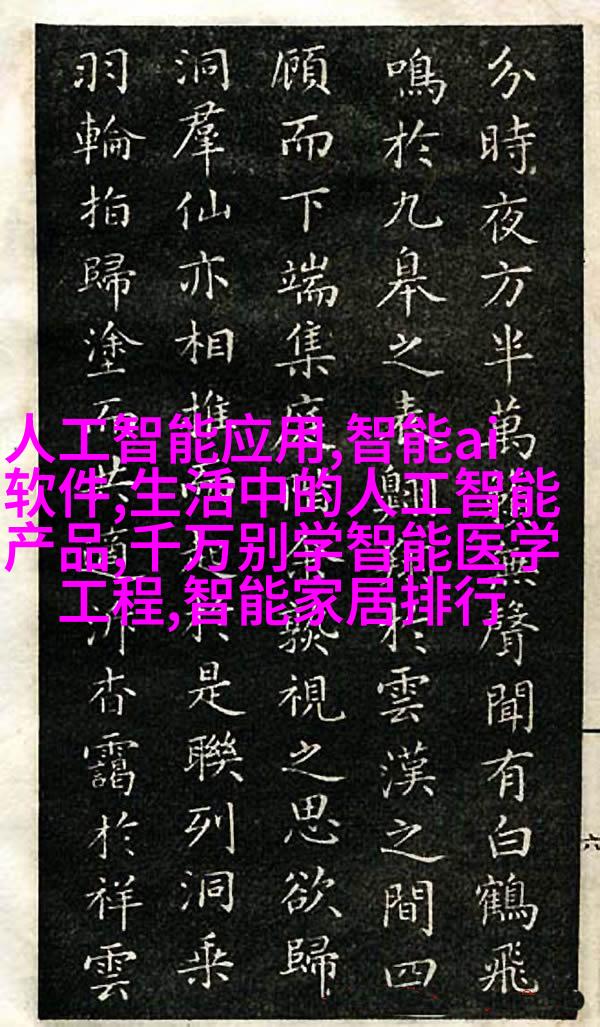 分時夜方半萬無聲聞有白鶴飛
鳴於九皋之表於雲漢之間四
顧而下端集庭視之思欲歸
洞羣仙亦相推而是聯列洞乘
羽輪指歸塗杳靄於祥雲
人工智能应用,智能ai
软件,生活中的人工智能
产品,千万别学智能医学
工程,智能家居排行
六